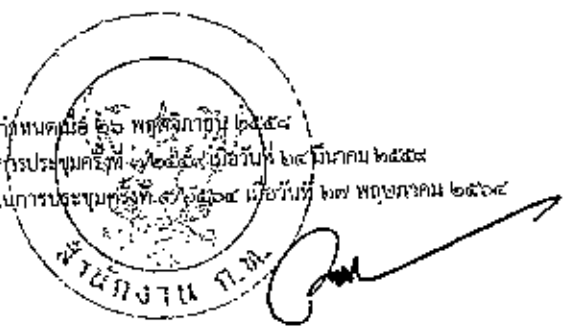 กำหนดเมื่อ ๒๖ พฤศจิกายน ๒๕๕๘
การประชุมครั้งที่ ๓/๒๕๕๙ เมื่อวันที่ ๒๔ มีนาคม ๒๕๕๙
ในการประชุมครั้งที่ ๙/๒๕๖๔ เมื่อวันที่ ๒๗ พฤษภาคม ๒๕๖๔
สำนักงาน ก.ท.